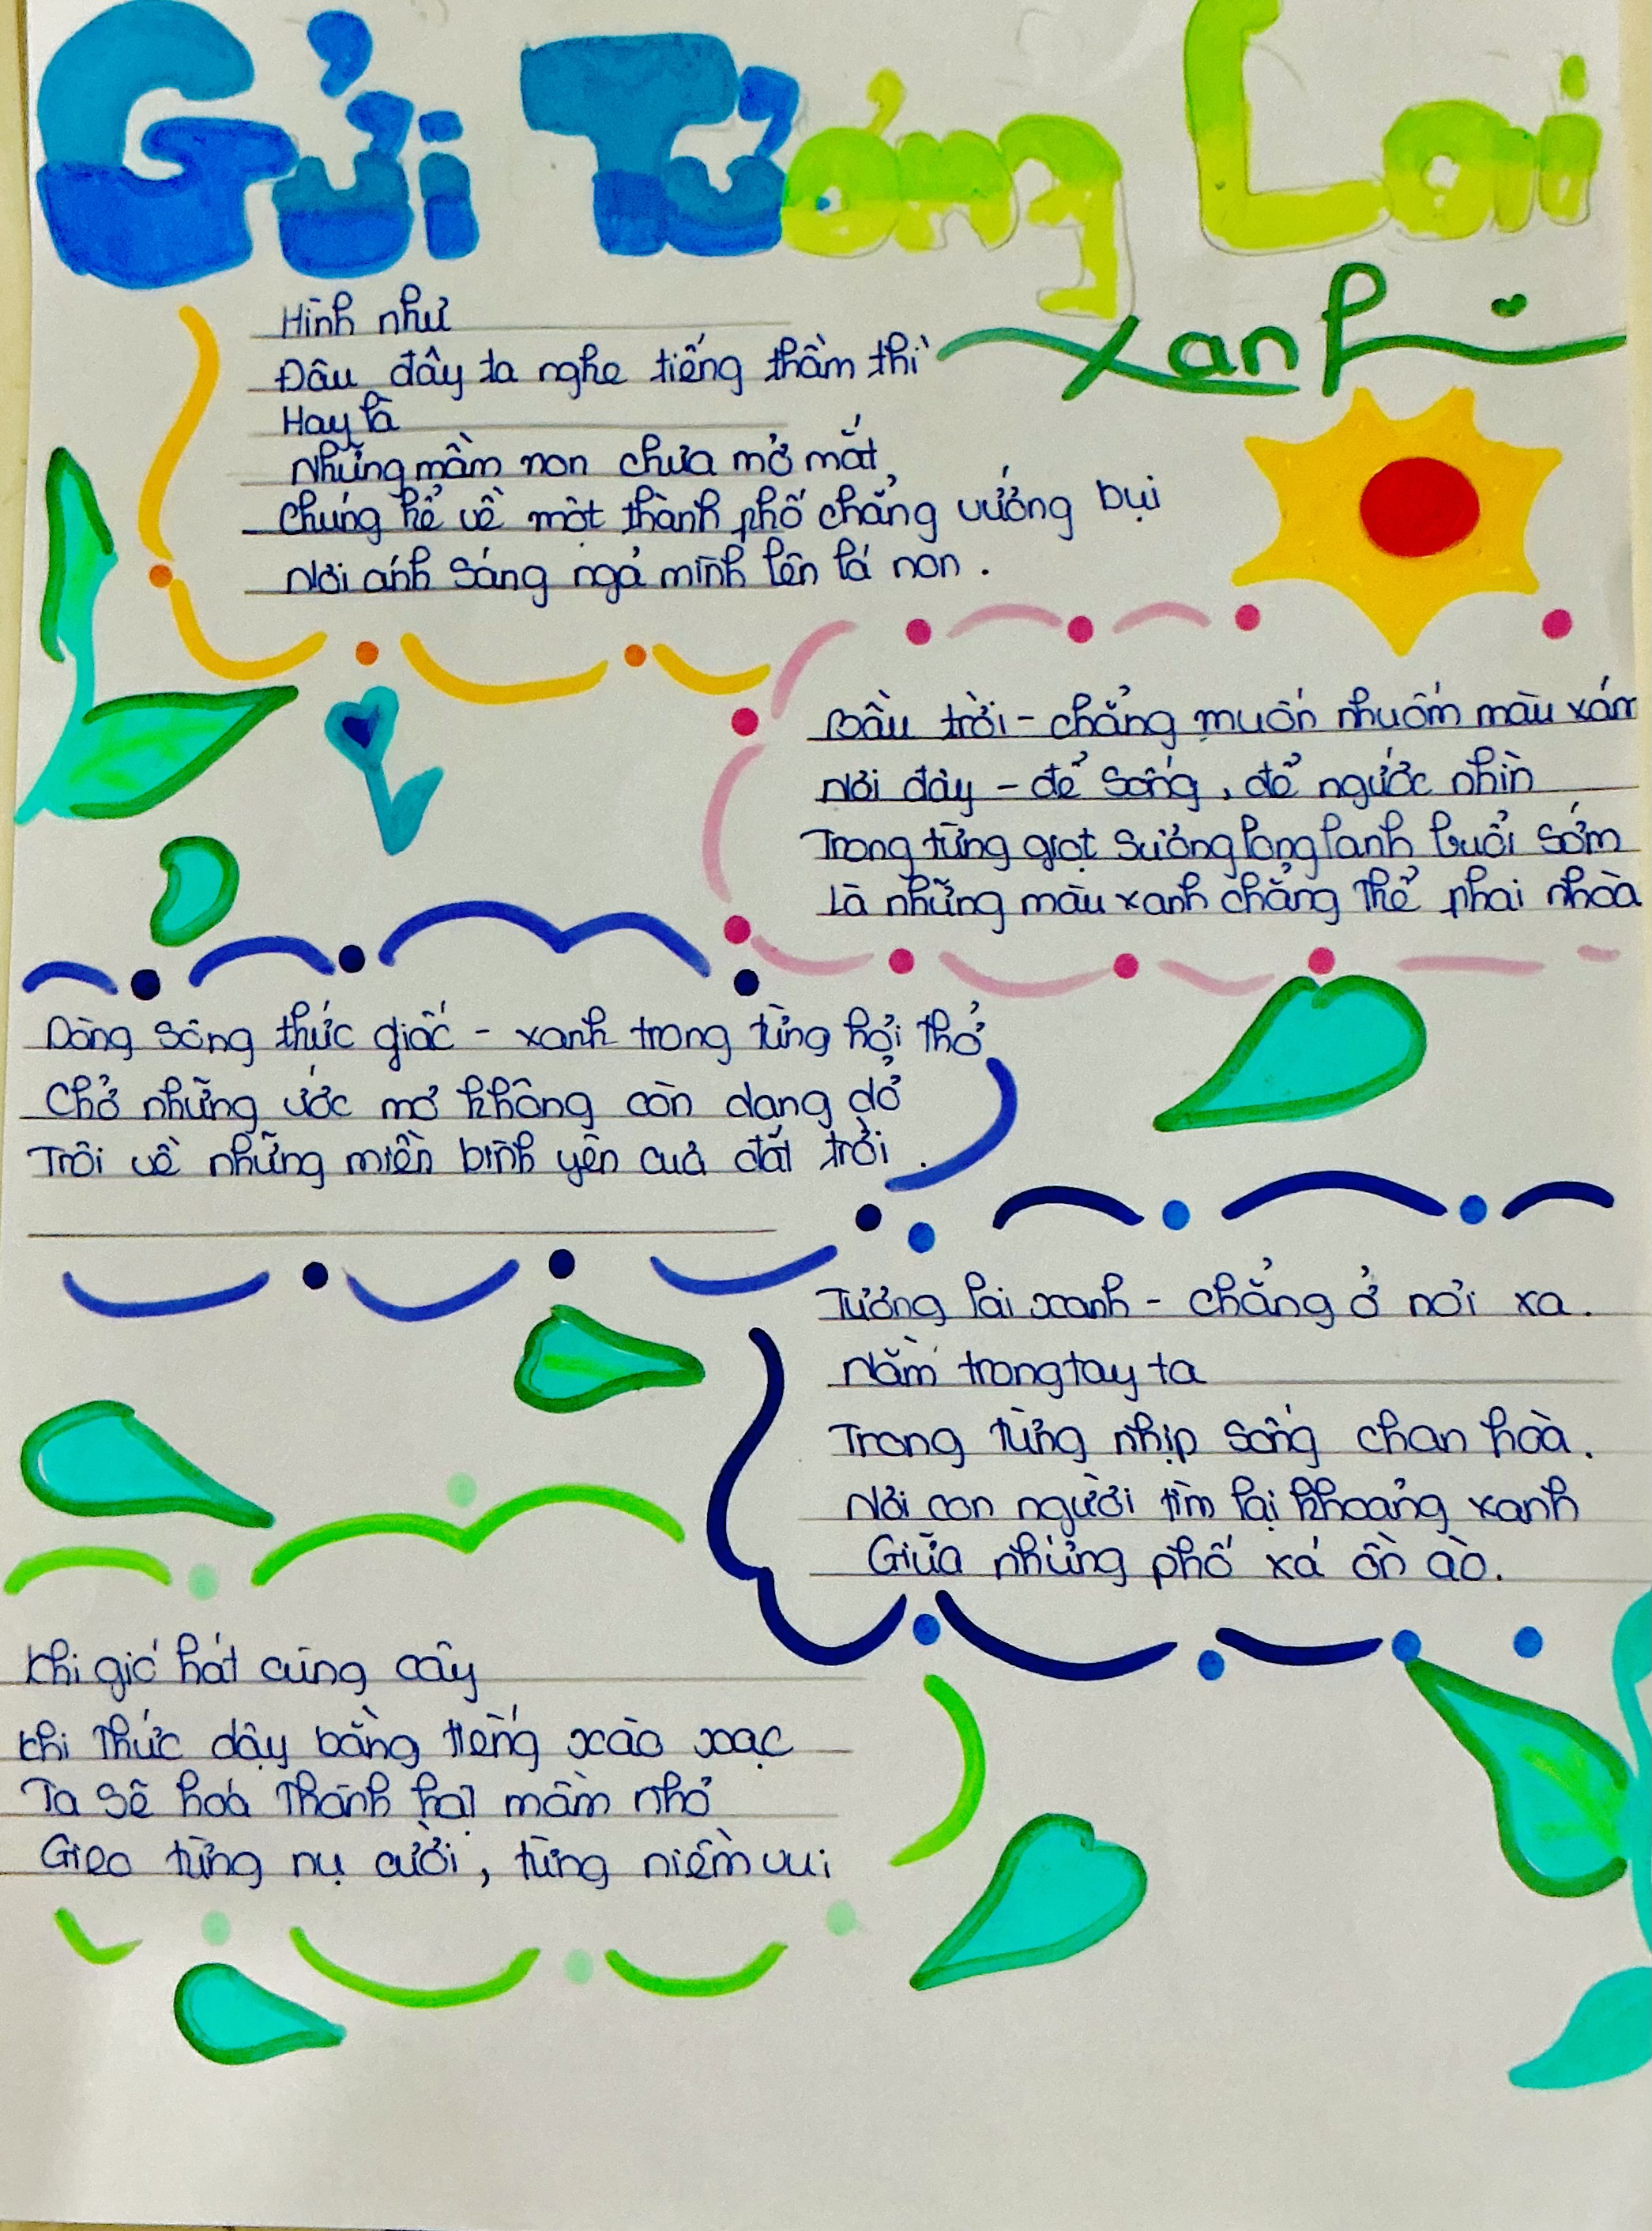 Gửi Tương Lai
xanh
Hình như
Đâu đây ta nghe tiếng thầm thì
Hay là
Những mầm non chưa mở mắt
Chúng kể về một thành phố chẳng vướng bụi
Nơi ánh sáng ngả mình lên lá non.
Bầu trời - chẳng muốn nhuốm màu xám
Nơi đây - để sống, để ngước nhìn
Trong từng giọt sương long lanh buổi sớm
Là những màu xanh chẳng thể phai nhòa
Dòng sông thức giấc - xanh trong từng hơi thở
Chở những ước mơ không còn dang dở
Trôi về những miền bình yên của đất trời.
Tương lai xanh - chẳng ở nơi xa.
Nằm trong tay ta
Trong từng nhịp sống chan hoà.
Nơi con người tìm lại khoảng xanh
Giữa những phố xá ồn ào.
Khi gió hát cùng cây
Khi thức dậy bằng tiếng xào xạc
Ta sẽ hoá thành hạt mầm nhỏ
Gieo từng nụ cười, từng niềm vui